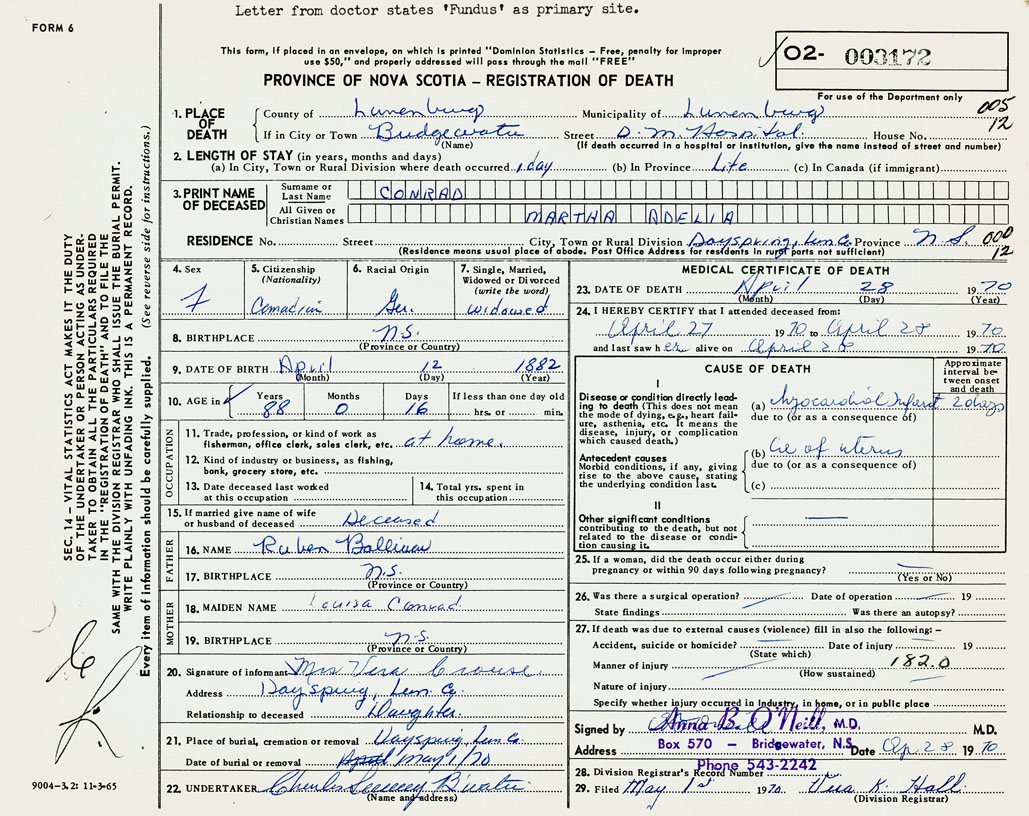 Letter from doctor states 'Fundus' as primary site.
FORM 6
This form, if placed in an envelope, on which is printed "Dominion Statistics – Free, penalty for improper
use $50," and properly addressed will pass through the mail "FREE"
PROVINCE OF NOVA SCOTIA – REGISTRATION OF DEATH
O2- 003172
For use of the Department only
005
12
1. PLACE OF DEATH
County of Lunenburg Municipality of Lunenburg
If in City or Town Bridgewater Street D. M. Hospital House No.
(Name) (If death occurred in a hospital or institution, give the name instead of street and number)
2. LENGTH OF STAY (in years, months and days)
(a) In City, Town or Rural Division where death occurred 1 day (b) In Province Life (c) In Canada (if immigrant)
3. PRINT NAME OF DECEASED
Surname or Last Name CONRAD
All Given or Christian Names MARTHA ADELIA
RESIDENCE No. Street City, Town or Rural Division Dayspring, Lun. Co. Province N S 000
12
(Residence means usual place of abode. Post Office Address for residents in rural parts not sufficient)
4. Sex F
5. Citizenship (Nationality) Canadian
6. Racial Origin Ger.
7. Single, Married, Widowed or Divorced (write the word) widowed
8. BIRTHPLACE N.S.
(Province or Country)
9. DATE OF BIRTH April 12 1882
(Month) (Day) (Year)
10. AGE in Years 88 Months 0 Days 16 If less than one day old hrs. or min.
OCCUPATION
11. Trade, profession, or kind of work as
fisherman, office clerk, sales clerk, etc. at home.
12. Kind of industry or business, as fishing,
bank, grocery store, etc.
13. Date deceased last worked
at this occupation
14. Total yrs. spent in
this occupation
15. If married give name of wife
or husband of deceased Deceased
FATHER
16. NAME Ruben Bolliver
17. BIRTHPLACE N.S.
(Province or Country)
MOTHER
18. MAIDEN NAME Louisa Conrad
19. BIRTHPLACE N.S.
(Province or Country)
20. Signature of informant Mrs Vera Crouse
Address Dayspring, Lun. Co.
Relationship to deceased Daughter.
21. Place of burial, cremation or removal Dayspring, Lun. Co.
Date of burial or removal April May 1/70
22. UNDERTAKER Charles B'water
(Name and address)
MEDICAL CERTIFICATE OF DEATH
23. DATE OF DEATH April 28 1970
(Month) (Day) (Year)
24. I HEREBY CERTIFY that I attended deceased from:
April 27 1970 to April 28 1970
and last saw her alive on April 28 1970
CAUSE OF DEATH
Approximate interval between onset and death
I
Disease or condition directly leading
to death (This does not mean
the mode of dying, e.g., heart failure,
asthenia, etc. It means the
disease, injury, or complication
which caused death.)
(a) Myocardial Infarct 2 days
due to (or as a consequence of)
Antecedent causes
Morbid conditions, if any, giving
rise to the above cause, stating
the underlying condition last.
(b) Ca of uterus
due to (or as a consequence of)
(c)
II
Other significant conditions
contributing to the death, but not
related to the disease or condition
causing it.
25. If a woman, did the death occur either during
pregnancy or within 90 days following pregnancy?
(Yes or No)
26. Was there a surgical operation? Date of operation 19
State findings Was there an autopsy?
27. If death was due to external causes (violence) fill in also the following: –
Accident, suicide or homicide? Date of injury 19
(State which)
Manner of injury 182.0
(How sustained)
Nature of injury
Specify whether injury occurred in industry, in home, or in public place
Signed by Anna B. O'Neill, M.D. M.D.
Address Box 570 – Bridgewater, N.S. Date Ap. 28 1970
Phone 543-2242
28. Division Registrar's Record Number
29. Filed May 1st 1970. Vera K. Hall
(Division Registrar)
SEC. 14 – VITAL STATISTICS ACT MAKES IT THE DUTY
OF THE UNDERTAKER OR PERSON ACTING AS UNDERTAKER
TO OBTAIN ALL THE PARTICULARS REQUIRED
IN THE "REGISTRATION OF DEATH" AND TO FILE THE
SAME WITH THE DIVISION REGISTRAR WHO SHALL ISSUE THE BURIAL PERMIT.
WRITE PLAINLY WITH UNFADING INK. THIS IS A PERMANENT RECORD.
Every item of information should be carefully supplied. (See reverse side for instructions.)
9004-3.2: 11-3-65